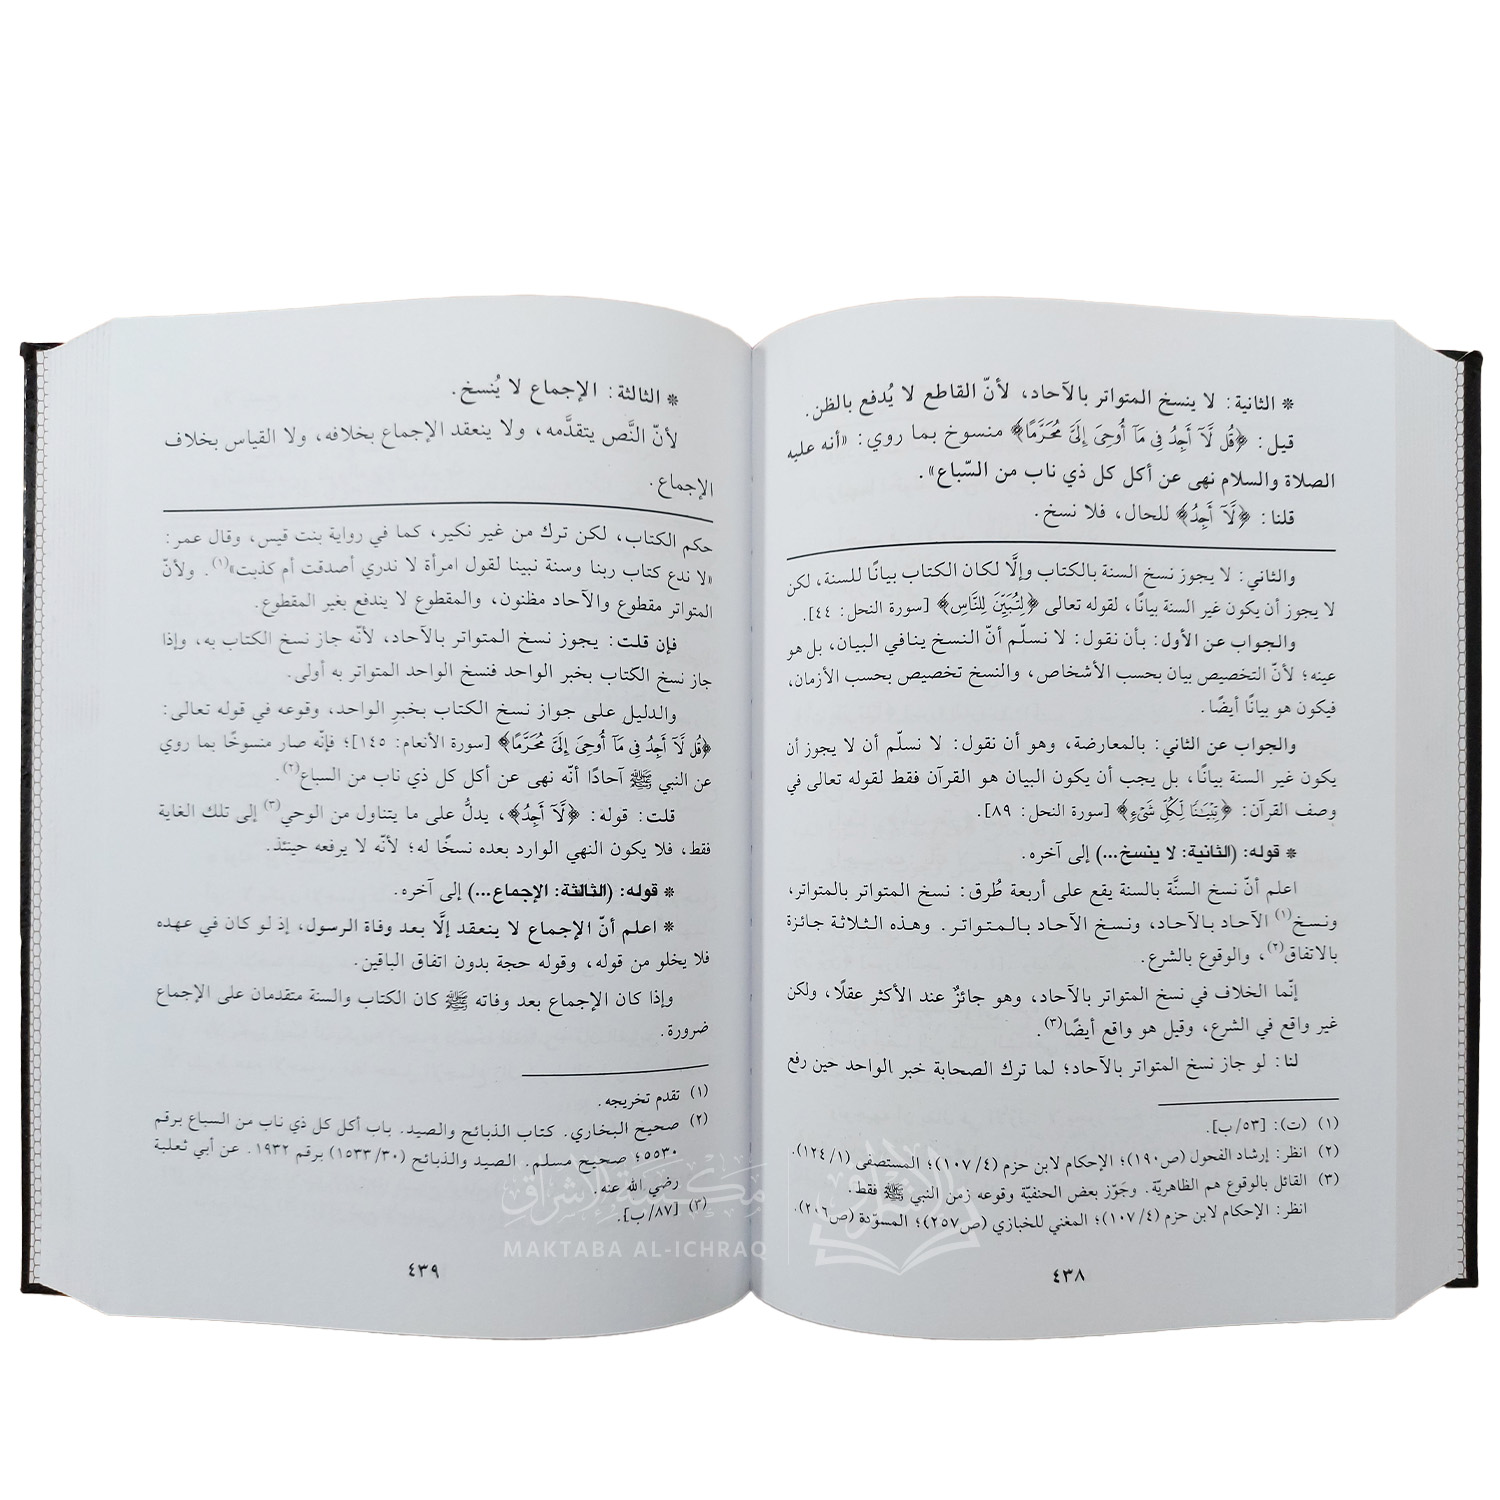 * الثانية: لا ينسخ المتواتر بالآحاد، لأنّ القاطع لا يُدفع بالظن.
قيل: ﴿قُل لَّآ أَجِدُ فِى مَآ أُوحِىَ إِلَىَّ مُحَرَّمًا﴾ منسوخ بما روي: «أنه عليه
الصلاة والسلام نهى عن أكل كل ذي ناب من السّباع».
قلنا: ﴿لَّآ أَجِدُ﴾ للحال، فلا نسخ.
والثاني: لا يجوز نسخ السنة بالكتاب وإلَّا لكان الكتاب بيانًا للسنة، لكن
لا يجوز أن يكون غير السنة بيانًا، لقوله تعالى ﴿لِتُبَيِّنَ لِلنَّاسِ﴾ [سورة النحل: ٤٤].
والجواب عن الأول: بأن نقول: لا نسلّم أنّ النسخ ينافي البيان، بل هو
عينه؛ لأنّ التخصيص بيان بحسب الأشخاص، والنسخ تخصيص بحسب الأزمان،
فيكون هو بيانًا أيضًا.
والجواب عن الثاني: بالمعارضة، وهو أن نقول: لا نسلّم أن لا يجوز أن
يكون غير السنة بيانًا، بل يجب أن يكون البيان هو القرآن فقط لقوله تعالى في
وصف القرآن: ﴿تِبْيَـٰنًا لِّكُلِّ شَىْءٍ﴾ [سورة النحل: ٨٩].
* قوله: (الثانية: لا ينسخ...) إلى آخره.
اعلم أنّ نسخ السنَّة بالسنة يقع على أربعة طُرق: نسخ المتواتر بالمتواتر،
ونسخ(١) الآحاد بالآحاد، ونسخ الآحاد بالمتواتر. وهذه الثلاثة جائزة
بالاتفاق(٢)، والوقوع بالشرع.
إنّما الخلاف في نسخ المتواتر بالآحاد، وهو جائزٌ عند الأكثر عقلًا، ولكن
غير واقع في الشرع، وقيل هو واقع أيضًا(٣).
لنا: لو جاز نسخ المتواتر بالآحاد؛ لما ترك الصحابة خبر الواحد حين رفع
(١) (ت): [٥٣/ب].
(٢) انظر: إرشاد الفحول (ص١٩٠)؛ الإحكام لابن حزم (١٠٧/٤)؛ المستصفى (١٢٤/١).
(٣) القائل بالوقوع هم الظاهريّة. وجَوّز بعض الحنفيّة وقوعه زمن النبي ﷺ فقط.
انظر: الإحكام لابن حزم (١٠٧/٤)؛ المغني للخبازي (ص٢٥٧)؛ المسوّدة (ص٢٠٦).
٤٣٨
* الثالثة: الإجماع لا يُنسخ.
لأنّ النَّص يتقدَّمه، ولا ينعقد الإجماع بخلافه، ولا القياس بخلاف
الإجماع.
حكم الكتاب، لكن ترك من غير نكير، كما في رواية بنت قيس، وقال عمر:
«لا ندع كتاب ربنا وسنة نبينا لقول امرأة لا ندري أصدقت أم كذبت»(١). ولأنّ
المتواتر مقطوع والآحاد مظنون، والمقطوع لا يندفع بغير المقطوع.
فإن قلت: يجوز نسخ المتواتر بالآحاد، لأنّه جاز نسخ الكتاب به، وإذا
جاز نسخ الكتاب بخبر الواحد فنسخ الواحد المتواتر به أولى.
والدليل على جواز نسخ الكتاب بخبر الواحد، وقوعه في قوله تعالى:
﴿قُل لَّآ أَجِدُ فِى مَآ أُوحِىَ إِلَىَّ مُحَرَّمًا﴾ [سورة الأنعام: ١٤٥]؛ فإنّه صار منسوخًا بما روي
عن النبي ﷺ آحادًا أنّه نهى عن أكل كل ذي ناب من السباع(٢).
قلت: قوله: ﴿لَّآ أَجِدُ﴾، يدلُّ على ما يتناول من الوحي(٣) إلى تلك الغاية
فقط، فلا يكون النهي الوارد بعده نسخًا له؛ لأنّه لا يرفعه حينئذ.
* قوله: (الثالثة: الإجماع...) إلى آخره.
* اعلم أنّ الإجماع لا ينعقد إلَّا بعد وفاة الرسول، إذ لو كان في عهده
فلا يخلو من قوله، وقوله حجة بدون اتفاق الباقين.
وإذا كان الإجماع بعد وفاته ﷺ كان الكتاب والسنة متقدمان على الإجماع
ضرورة.
(١) تقدم تخريجه.
(٢) صحيح البخاري. كتاب الذبائح والصيد. باب أكل كل ذي ناب من السباع برقم
٥٥٣٠؛ صحيح مسلم. الصيد والذبائح (١٥٣٣/٣٠) برقم ١٩٣٢. عن أبي ثعلبة
رضي الله عنه.
(٣) [٨٧/ب].
٤٣٩
مكتبة الإشراق
MAKTABA AL-ICHRAQ